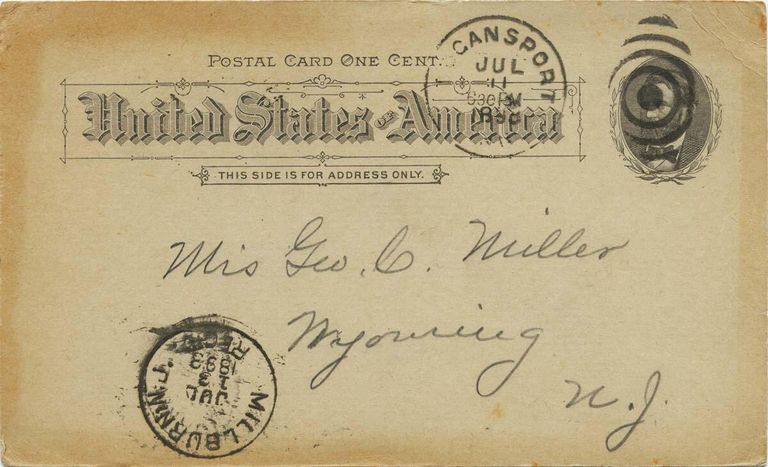 POSTAL CARD ONE CENT.
United States OF America
THIS SIDE IS FOR ADDRESS ONLY.
GANSPORT
JUL
11
630PM
Mrs Geo. C. Miller
Wyoming
N. J.
MILLBURN N.J.
JUL
13
1893
REC'D